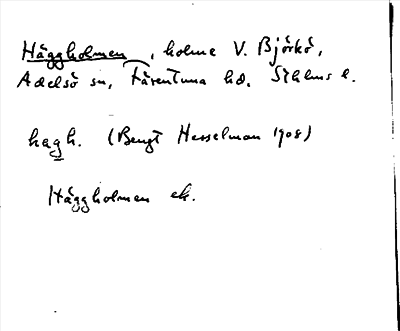 Häggholmen, holme V. Björkö,
Adelsö sn, Färentuna hd, Sthlms l.
hagh. (Bengt Hesselman 1908)
Häggholmen ek.